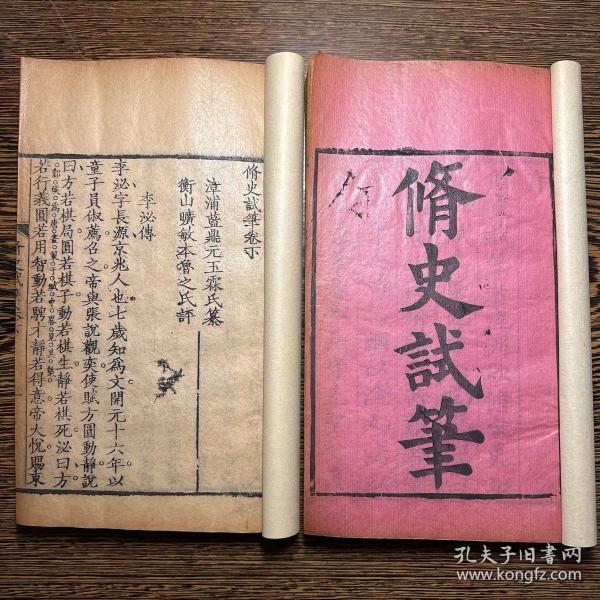 脩史試筆
脩史試筆卷下
漳浦藍鼎元玉霖氏纂
衡山曠敏本魯之氏評
李泌傳
李泌字長源京兆人也七歲知爲文開元十六年以
童子員俶薦召之帝與張說觀奕使賦方圓動靜說
曰方若棋局圓若棋子動若棋生靜若棋死泌曰方
若行義圓若用智動若騁才靜若得意帝大悅賜束
孔夫子旧书网
www.kongfz.com